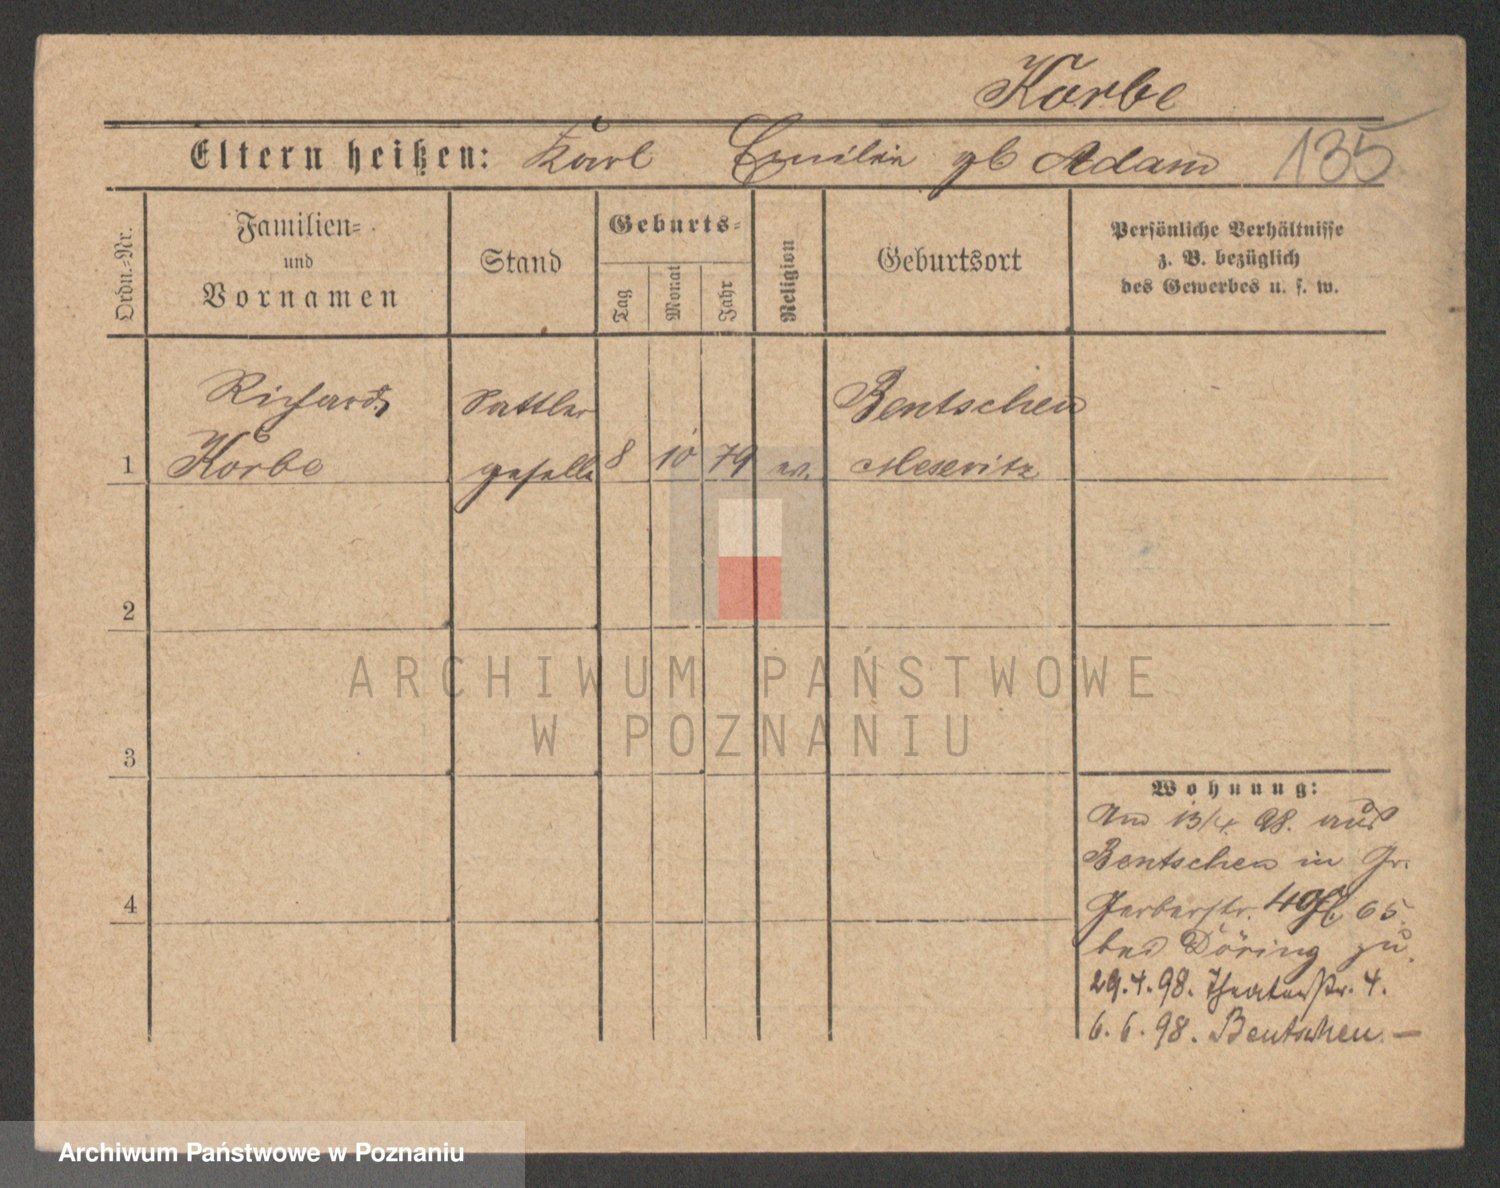 Korbe
Eltern heißen: Karl Emilie gb Adam 135
Ordn.-Nr.
Familien-
und
Vornamen
Stand
Geburts-
Tag
Monat
Jahr
Religion
Geburtsort
Persönliche Verhältnisse
z. B. bezüglich
des Gewerbes u. s. w.
Richard Sattler Bentschen
1 Korbe geselle 8 10 79 ev. Meseritz
2
3
4
Wohnung:
Am 13/4. 98. aus
Bentschen in Gr.
Gerberstr. 65.
bei Döring zu.
29.4.98. Theaterstr. 4.
6.6.98. Bentschen. —
ARCHIWUM PAŃSTWOWE
W POZNANIU
Archiwum Państwowe w Poznaniu